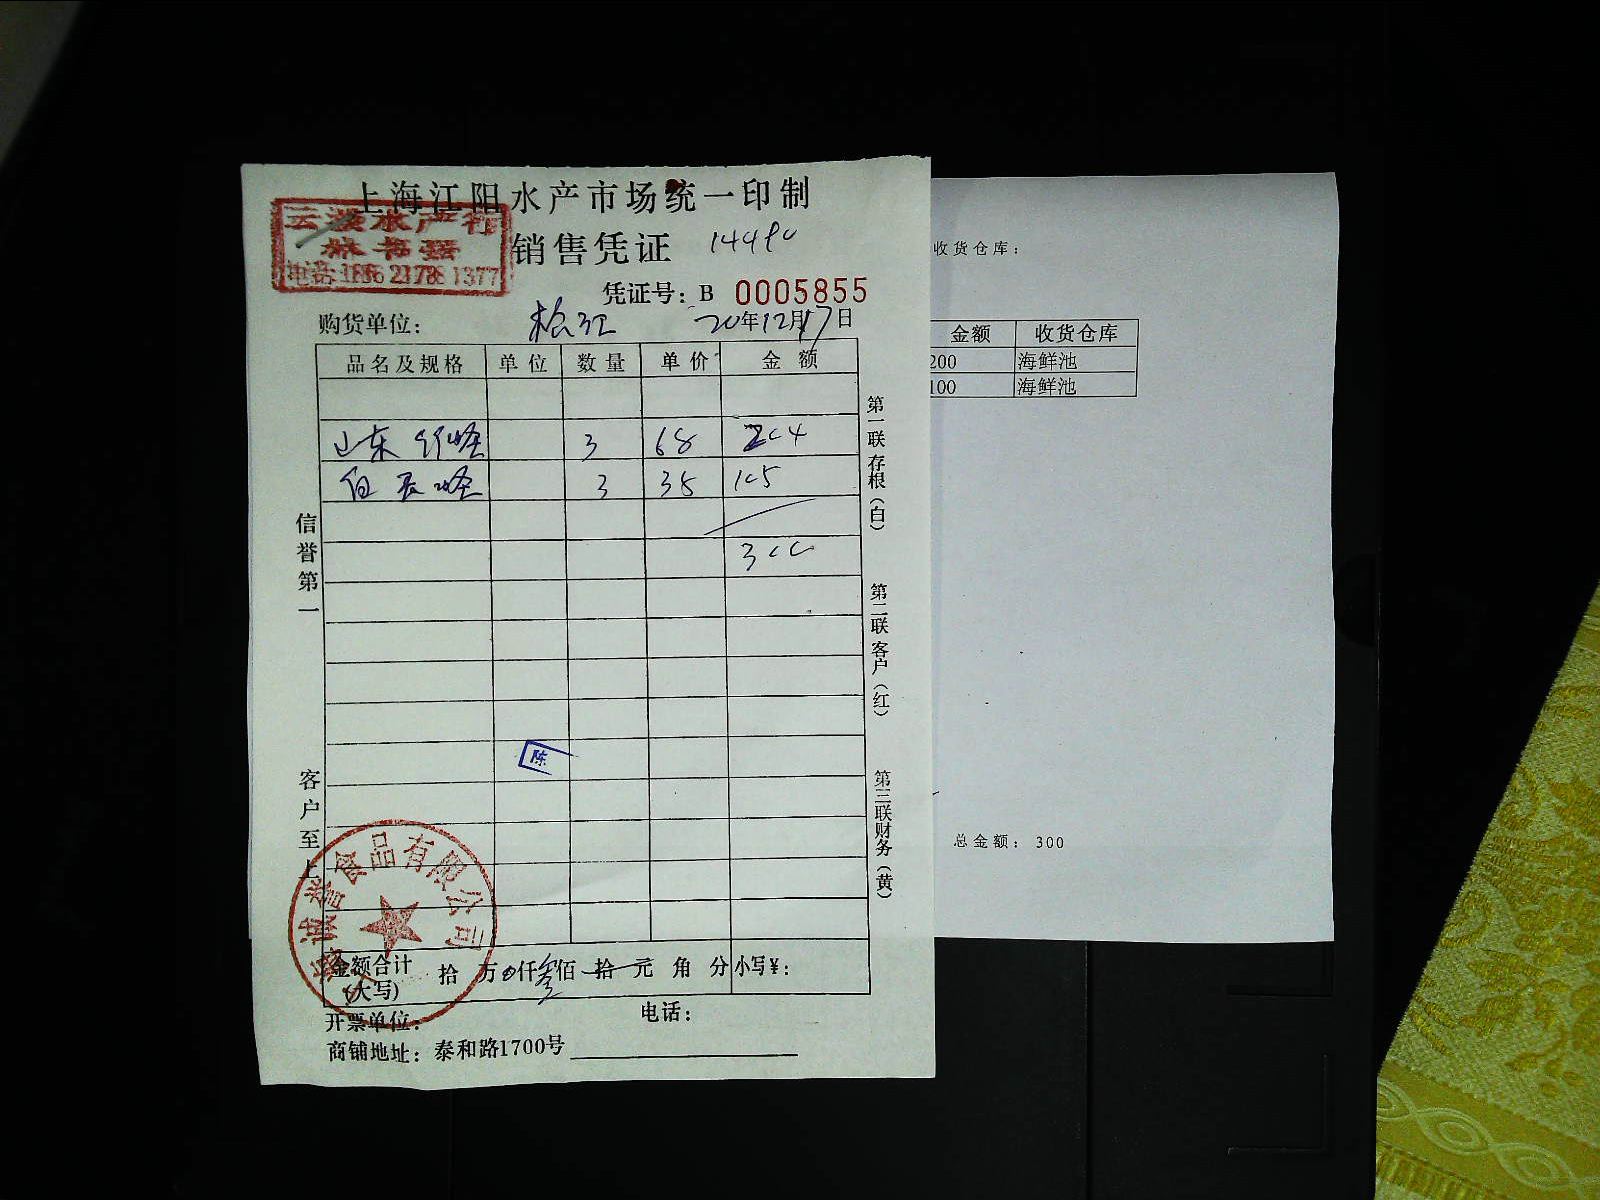 上海江阳水产市场统一印制
水产行
销售凭证
1377
凭证号：B 0005855
购货单位： 松江 20年12月17日
品名及规格 单位 数量 单价 金额
山东 3 68 204
白 3 35 105
300
信誉第一
客户至上
第一联存根（白）
第二联客户（红）
第三联财务（黄）
陈
诚誉食品有限公司
金额合计（大写） 拾 万 0 仟 叁 佰 拾 元 角 分 小写¥：
开票单位： 电话：
商铺地址：泰和路1700号
收货仓库：
金额 收货仓库
200 海鲜池
100 海鲜池
总金额：300